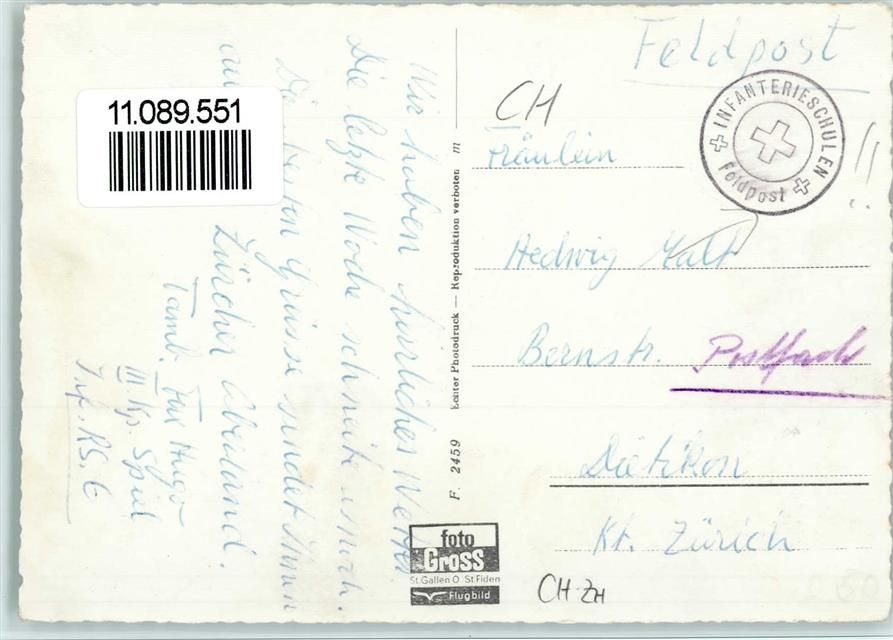 11.089.551
Feldpost
INFANTERIESCHULEN
Feldpost
CH
Fräulein
Hedwig
Bernstr. Postfach
Dietikon
Kt. Zürich
CH-ZH
Wir haben herrliches Wetter.
Die letzte Woche schneite es noch.
Die besten Grüsse sendet Ihnen
Zürcher Oberland.
Tamb. Hugo
III. Kp. Spiel
Inf. RS. 6
F. 2459 Echter Photodruck — Reproduktion verboten m
foto
Gross
St.Gallen O St.Fiden
Flugbild